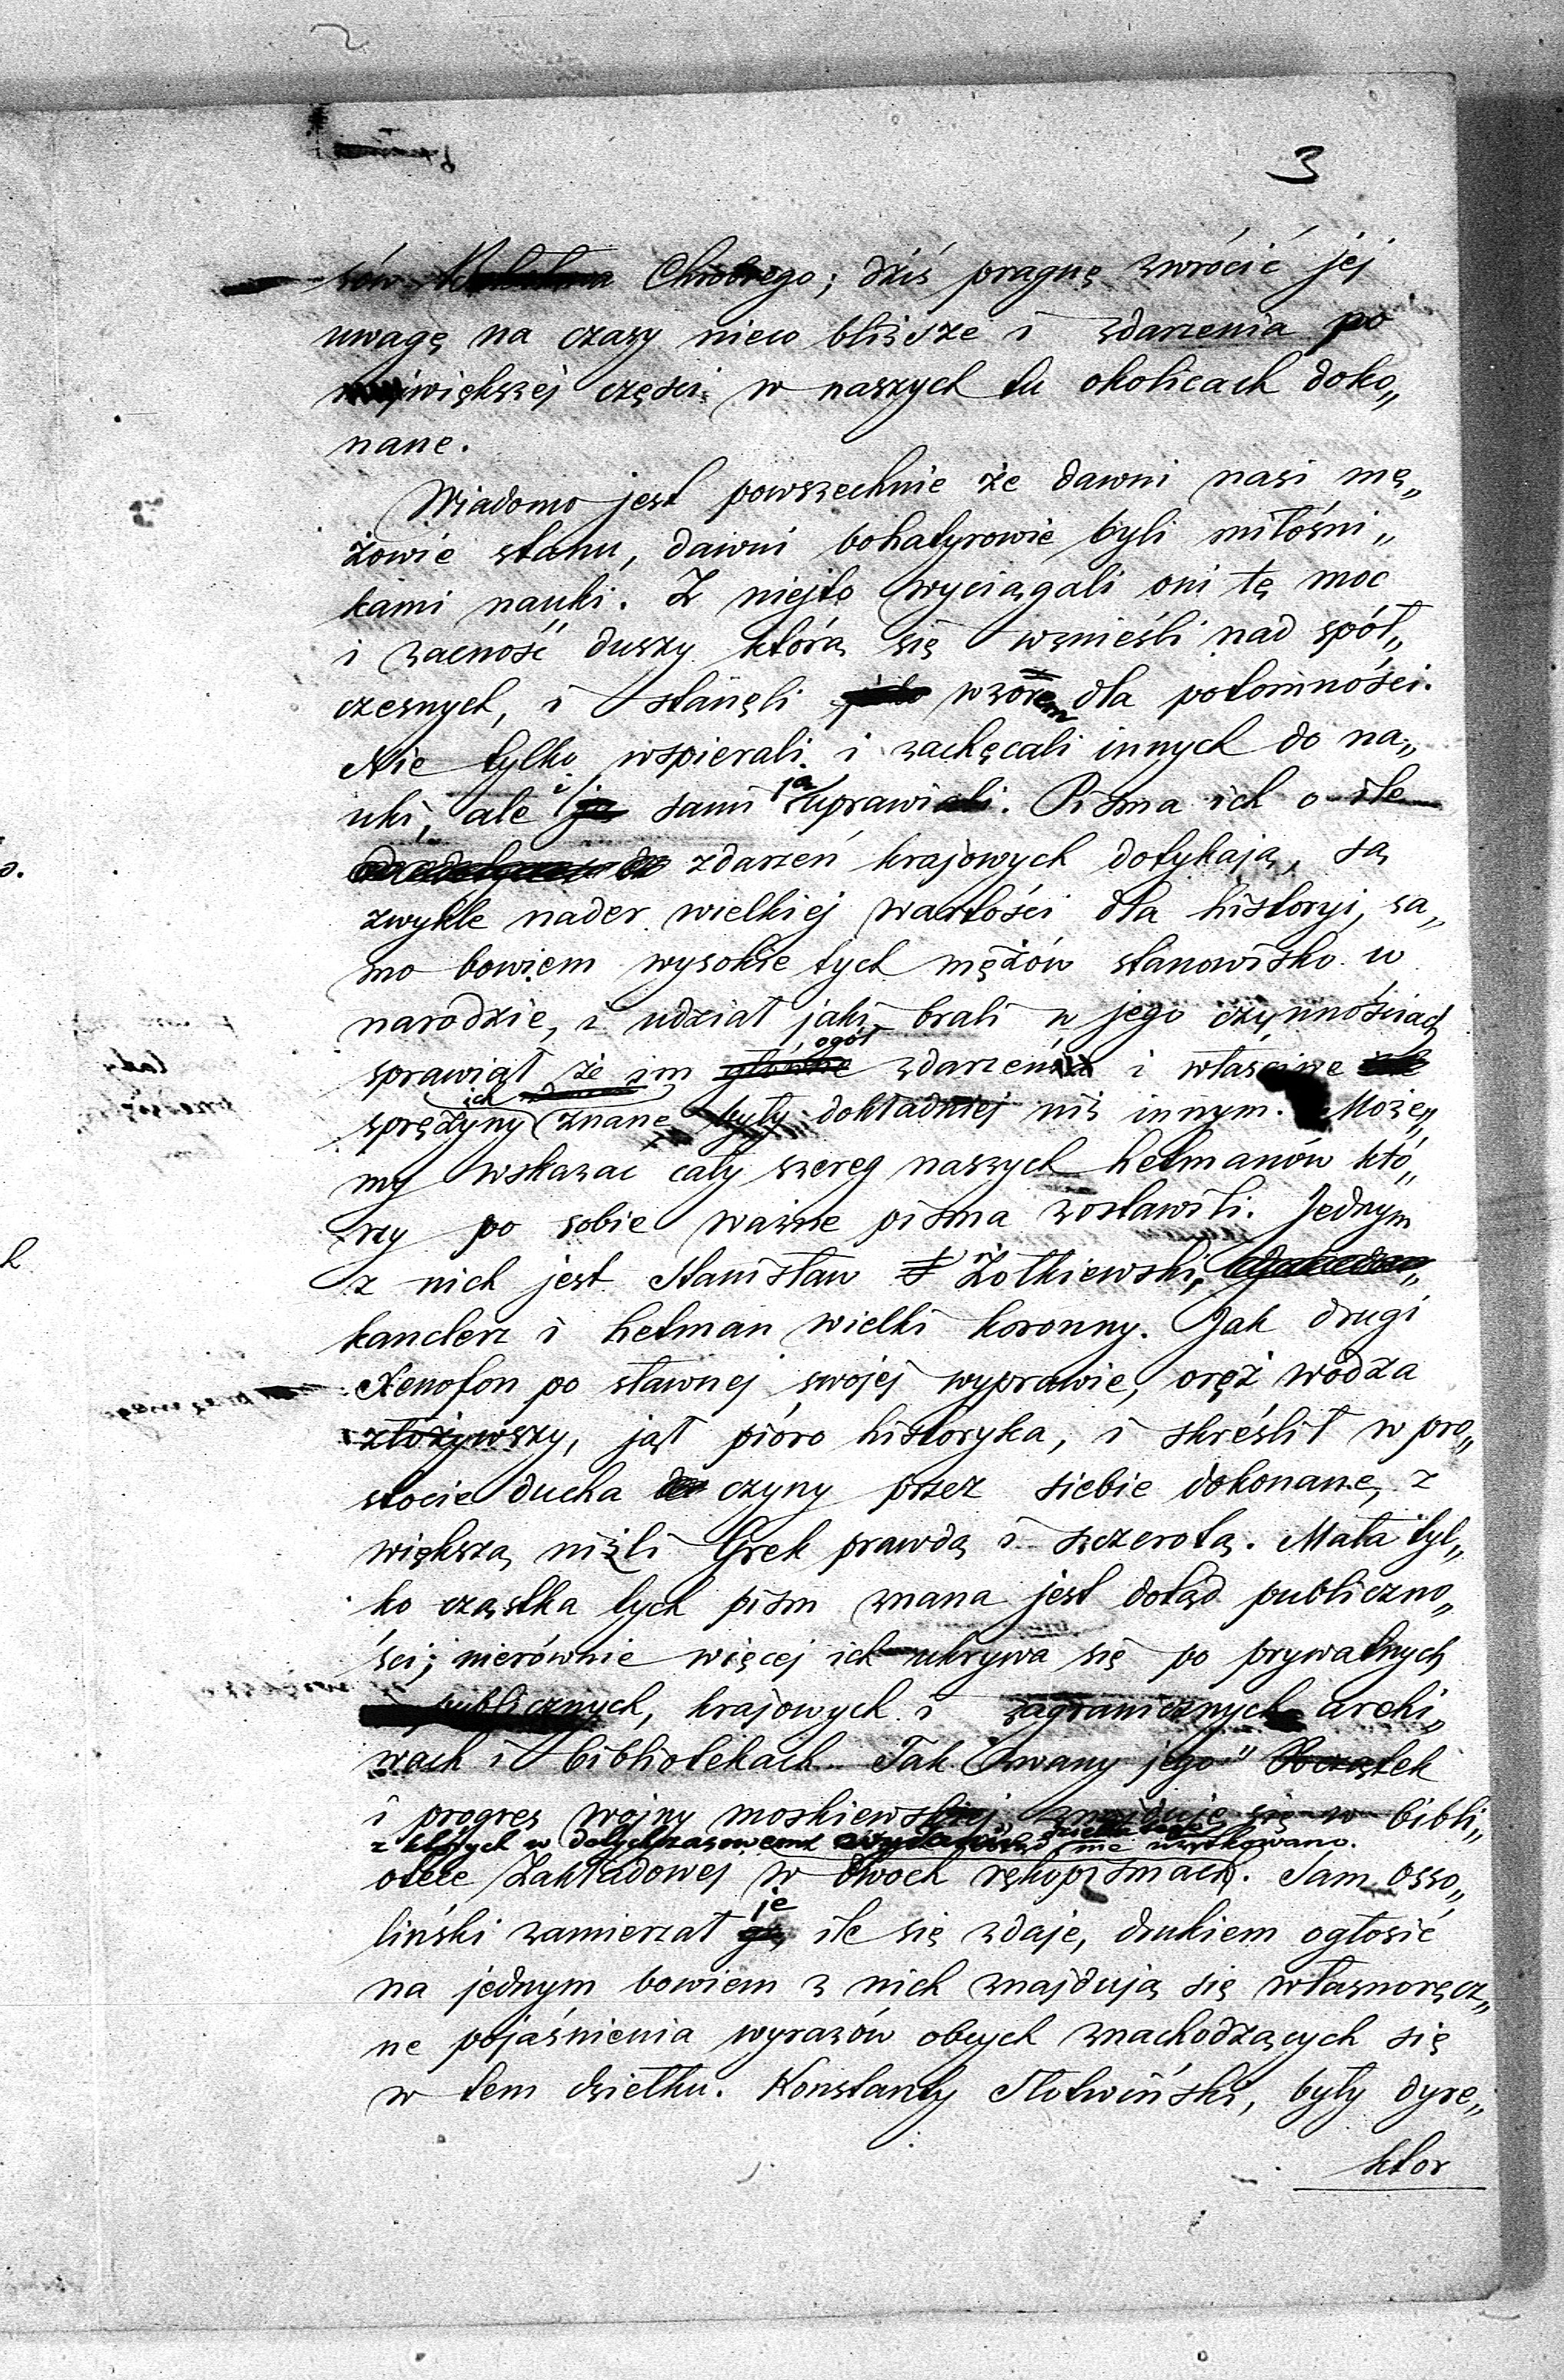 3
sów Chrobrego; dziś pragnę zwrócić jej
uwagę na czasy nieco bliższe i zdarzenia po
większej części w naszych tu okolicach doko„
nane.
Wiadomo jest powszechnie że dawni nasi mę„
żowie stanu, dawni bohatyrowie byli miłośni„
kami nauki. Z niejto wyciągali oni tę moc
i zacność duszy którą się wznieśli nad spół„
czesnych, i stanęli wzorem dla potomności.
Nie tylko wspierali i zachęcali innych do na„
uki, ale i sami ją uprawiali. Pisma ich o ile
zdarzeń krajowych dotykają, są
zwykle nader wielkiej wartości dla historyi, sa„
mo bowiem wysokie tych mężów stanowisko w
narodzie, i udział jaki brali w jego czynnościach
ogół
sprawiał że im główne zdarzenia i właściwe
ich
sprężyny znane były dokładniej niż innym. Może„
my wskazać cały szereg naszych hetmanów któ„
rzy po sobie ważne pisma zostawili. Jednym
z nich jest Stanisław Żółkiewski,
kanclerz i hetman wielki koronny. Jak drugi
Xenofon po sławnej swojej wyprawie, oręż wodza
złożywszy, jął pióro historyka, i skreślił w pro„
stocie ducha czyny przez siebie dokonane, z
większą niżli Grek prawdą i szczerotą. Mała tyl„
ko cząstka tych pism znana jest dotąd publiczno„
ści; nierównie więcej ich ukrywa się po prywatnych
publicznych, krajowych i zagranicznych archi„
wach i bibliotekach. Tak zwany jego "Początek
i progres wojny moskiewskiej znajduje się w bibli„
z których w dotychczasowemu wydaniu nie użytkowano.
otece Zakładowej w dwóch rękopismach. Sam Osso„
je
liński zamierzał go, ile się zdaje, drukiem ogłosić
na jednym bowiem z nich znajdują się własnoręcz„
ne pojaśnienia wyrazów obcych znachodzących się
w tem dziełku. Konstanty Słotwiński, były dyre„
ktor